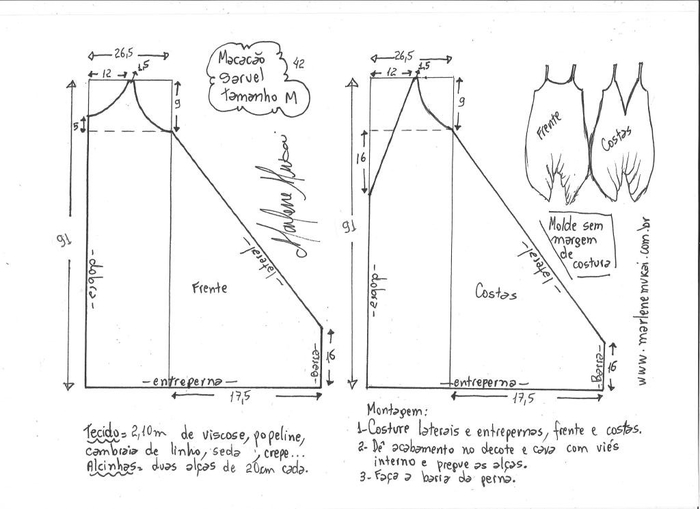 26,5
12
1,5
5
9
91
dobra
lateral
Frente
Barra
16
entreperna
17,5
Macacão
saruel
tamanho M
42
Marlene Mukai
26,5
12
1,5
16
9
91
dobra
lateral
Costas
Barra
16
entreperna
17,5
Frente
Costas
Molde sem
margem
de
costura
www.marlenemukai.com.br
Tecido= 2,10m de viscose, popeline,
cambraia de linho, seda, crepe...
Alcinhas= duas alças de 20cm cada.
Montagem:
1- Costure laterais e entrepernas, frente e costas.
2- Dê acabamento no decote e cava com viés
interno e pregue as alças.
3- Faça a barra da perna.